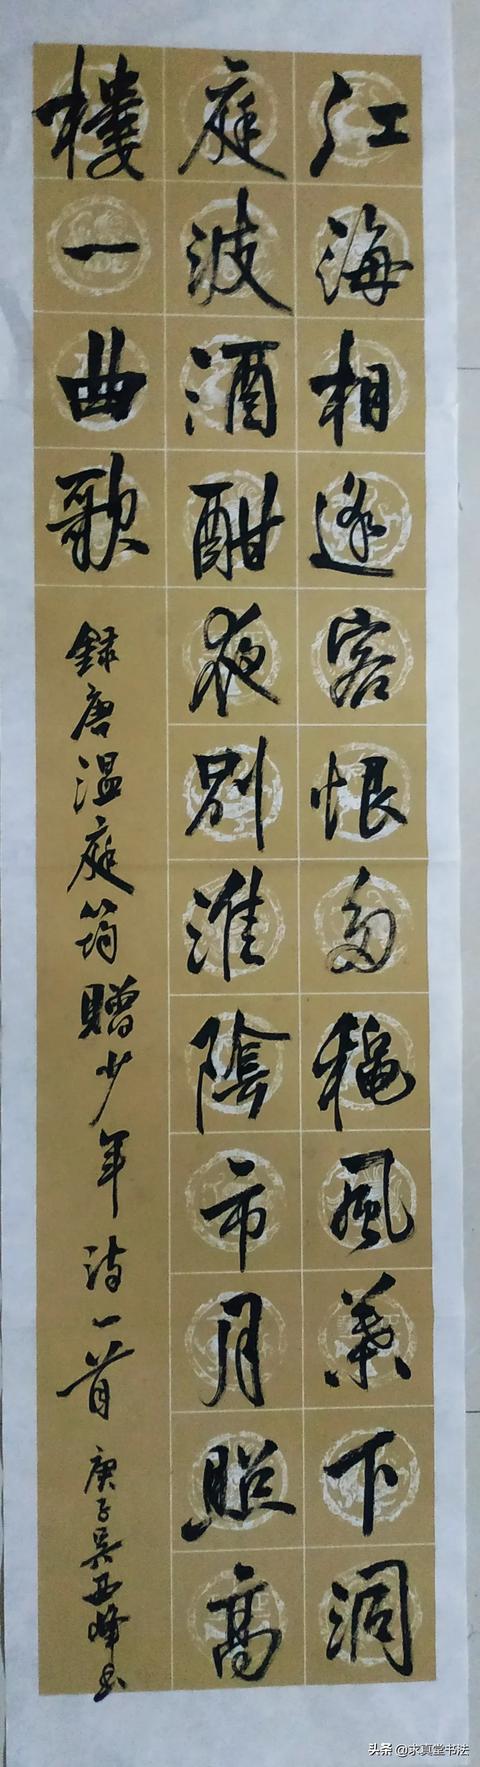 江海相逢客恨多穐風葉下洞
庭波酒酣夜别淮陰市月照高
樓一曲歌
録唐温庭筠贈少年诗一首 庚子吴亚峰书
头条 @求真堂书法